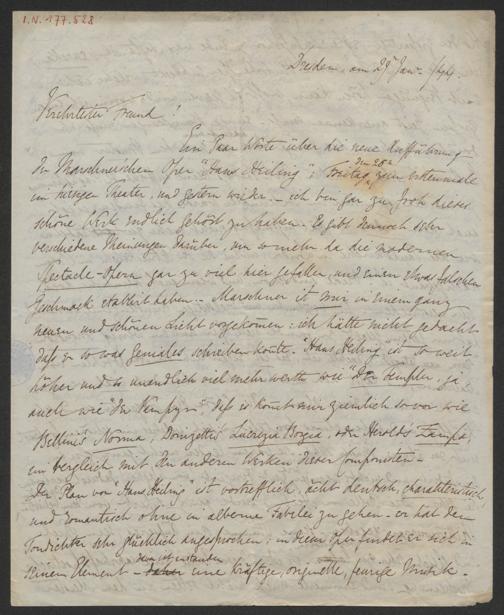 I.N. 177.528
Dresden, am 29 Jan. 1844.
Verehrtester Freund!
Ein Paar Worte über die neue Aufführung
der Marschnerschen Oper "Hans Heiling"; Freitag, zum erstenmale
im hiesigen Theater, und gestern wieder. – ich bin gar zu froh dieses
schöne Werk endlich gehört zu haben. Es gibt dennoch sehr
verschiedene Meinungen darüber, um so mehr da die modernen
Spectacle-Opern gar zu viel hier gefallen, und einen etwas falschen
Geschmack etablirt haben. – Marschner ist mir in einem ganz
neuen und schönen Licht vorgekommen: ich hätte nicht gedacht
daß er so was geniales schreiben könte. "Hans Heiling" ist so weit
höher und so unendlich viel mehr werth wie "Der Templer, ja,
auch wie "der Vampyr" daß es kömt mir ziemlich so vor wie
Bellini's Norma, Donizetti's Lucrezia Borgia, oder Herold's Zampa,
im Vergleich mit den anderen Werken dieser Componisten –
Der Plan von "Hans Heiling" ist vortrefflich, ächt deutsch, charakteristisch,
und romantisch ohne in alberne Fabelei zu gehen – er hat den
Tondichter sehr glücklich angesprochen: in dieser Oper findet er sich in
seinem Element – daher eine kräftige, originelle, feurige Musik. –